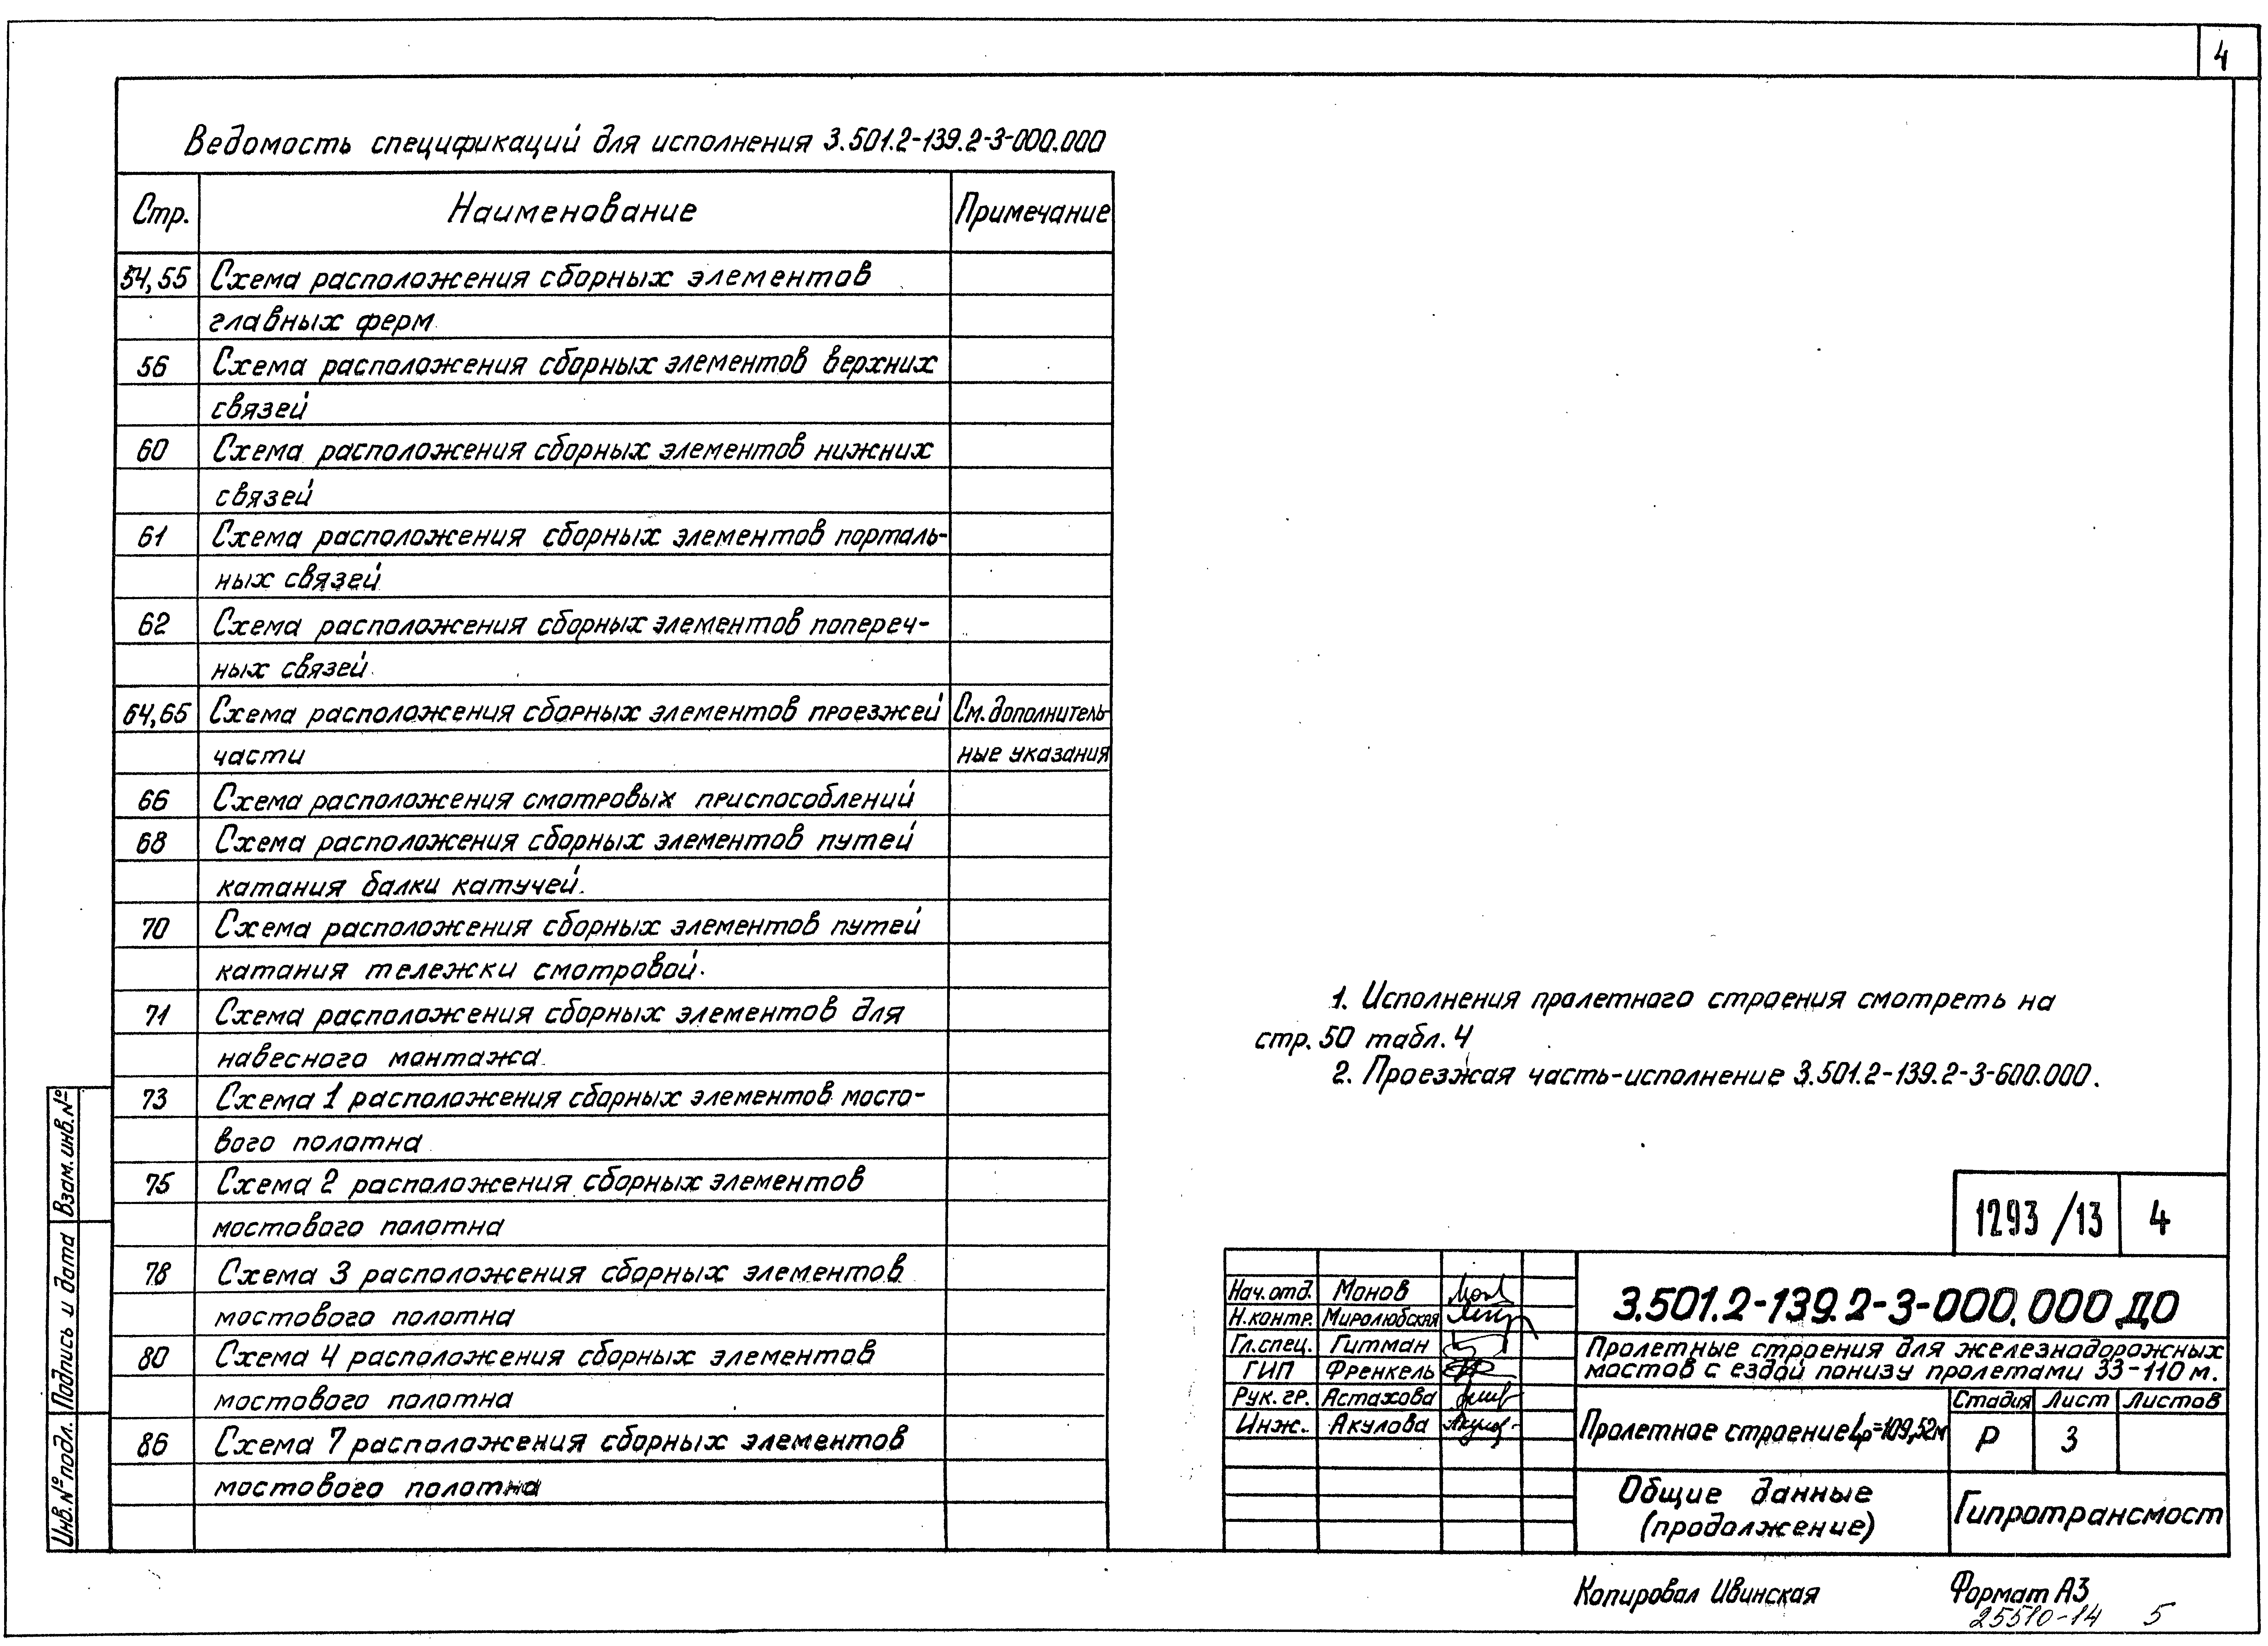 4
Ведомость спецификаций для исполнения 3.501.2-139.2-3-000.000
Стр. Наименование Примечание
54,55 Схема расположения сборных элементов
главных ферм
56 Схема расположения сборных элементов верхних
связей
60 Схема расположения сборных элементов нижних
связей
61 Схема расположения сборных элементов порталь-
ных связей
62 Схема расположения сборных элементов попереч-
ных связей.
64,65 Схема расположения сборных элементов проезжей См. дополнитель-
части ные указания
66 Схема расположения смотровых приспособлений
68 Схема расположения сборных элементов путей
катания балки катучей.
70 Схема расположения сборных элементов путей
катания тележки смотровой.
71 Схема расположения сборных элементов для
навесного монтажа.
73 Схема 1 расположения сборных элементов мосто-
вого полотна
75 Схема 2 расположения сборных элементов
мостового полотна
78 Схема 3 расположения сборных элементов
мостового полотна
80 Схема 4 расположения сборных элементов
мостового полотна
86 Схема 7 расположения сборных элементов
мостового полотна
1. Исполнения пролетного строения смотреть на
стр. 50 табл. 4
2. Проезжая часть-исполнение 3.501.2-139.2-3-600.000.
Взам. инв. №
Подпись и дата
Инв. № подл.
1293/13 4
Нач. отд. Монов
Н. контр. Миролюбская
Гл. спец. Гитман
ГИП Френкель
Рук. гр. Астахова
Инж. Акулова
3.501.2-139.2-3-000.000 ДО
Пролетные строения для железнодорожных
мостов с ездой понизу пролетами 33-110 м.
Пролетное строение Lр=109,52м
Стадия Лист Листов
Р 3
Общие данные
(продолжение)
Гипротрансмост
Копировал Ивинская Формат А3
25510-14 5